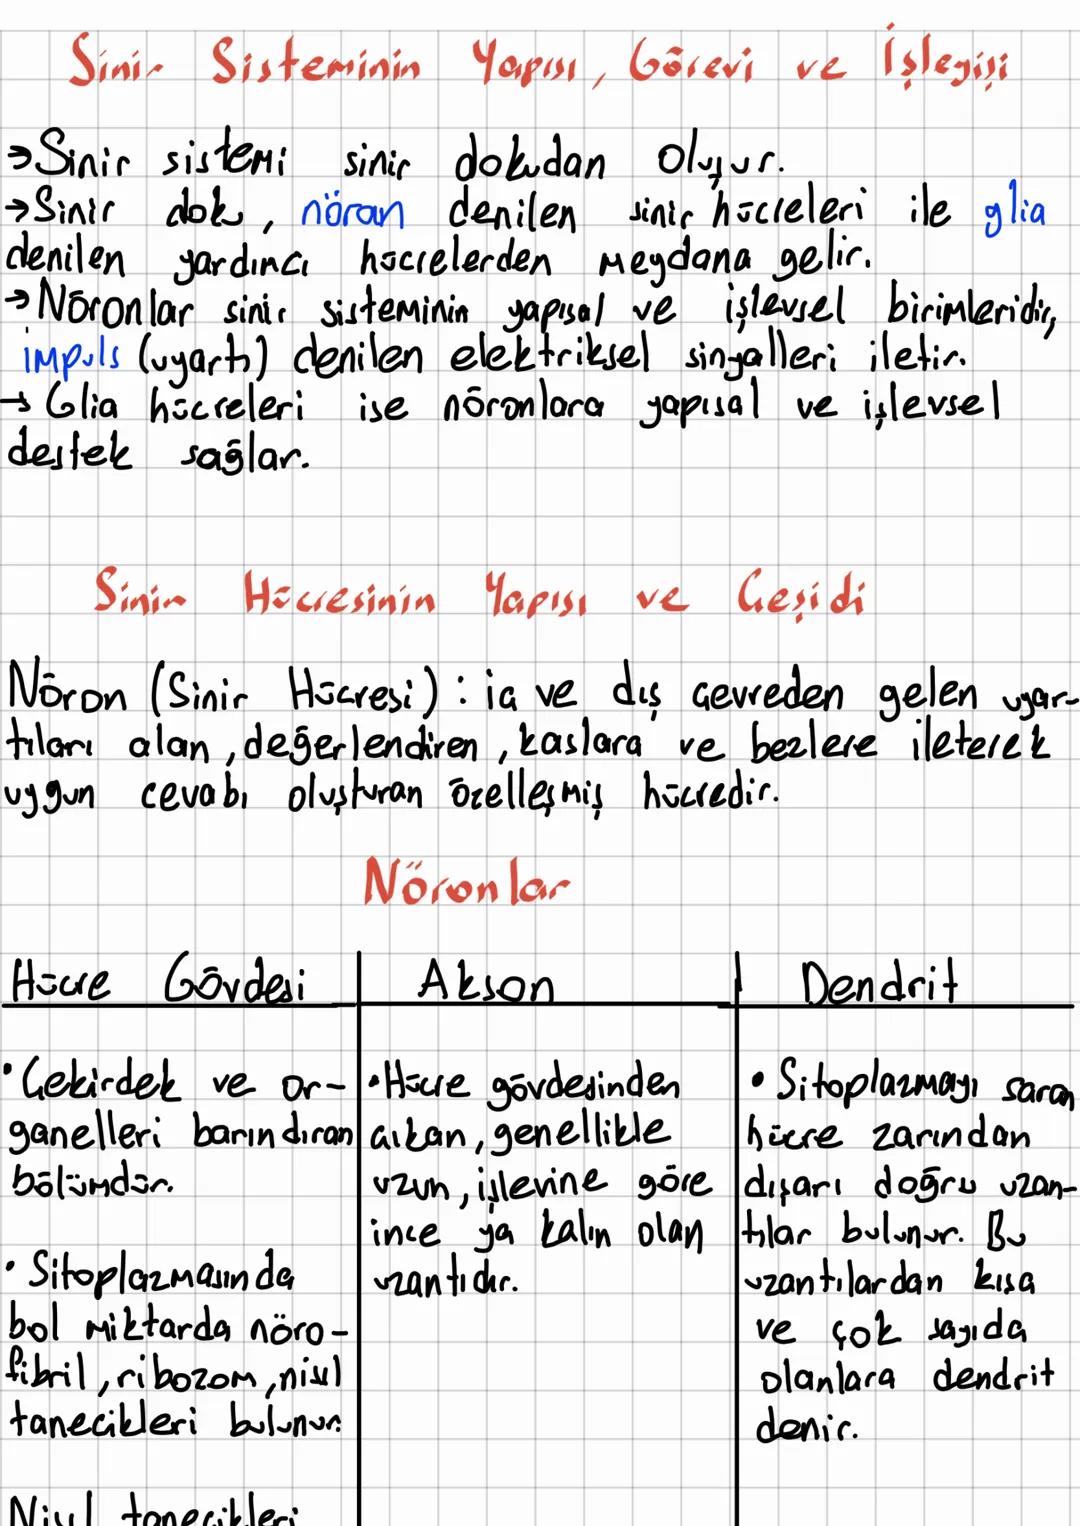 Sinir Sisteminin Yapısı, Görevi ve İşleyişi
→Sinir sistemi sinir dokudan oluşur.
→Sinir doku, nöron denilen sinir hücreleri ile glia
denilen yardımcı hücrelerden meydana gelir.
→Nöronlar sinir sisteminin yapısal ve işlevsel birimleridir,
impuls (uyartı) denilen elektriksel sinyalleri iletir.
→Glia hücreleri ise nöronlara yapısal ve işlevsel
destek sağlar.
Sinir Hücresinin Yapısı ve Çeşidi
Nöron (Sinir Hücresi) : iç ve dış çevreden gelen uyar-
tıları alan, değerlendiren, kaslara ve bezlere ileterek
uygun cevabı oluşturan özelleşmiş hücredir.
Nöronlar
Hücre Gövdesi
• Çekirdek ve or-
ganelleri barındıran
bölümdür.
• Sitoplazmasında
bol miktarda nöro-
fibril, ribozom, nisl
tanecikleri bulunur.
Nisl tanecikleri
Akson
• Hücre gövdesinden
çıkan, genellikle
uzun, işlevine göre
ince ya kalın olan
uzantıdır.
Dendrit
• Sitoplazmayı saran
hücre zarından
dışarı doğru uzan-
tılar bulunur. Bu
uzantılardan kısa
ve çok sayıda
olanlara dendrit
denir.